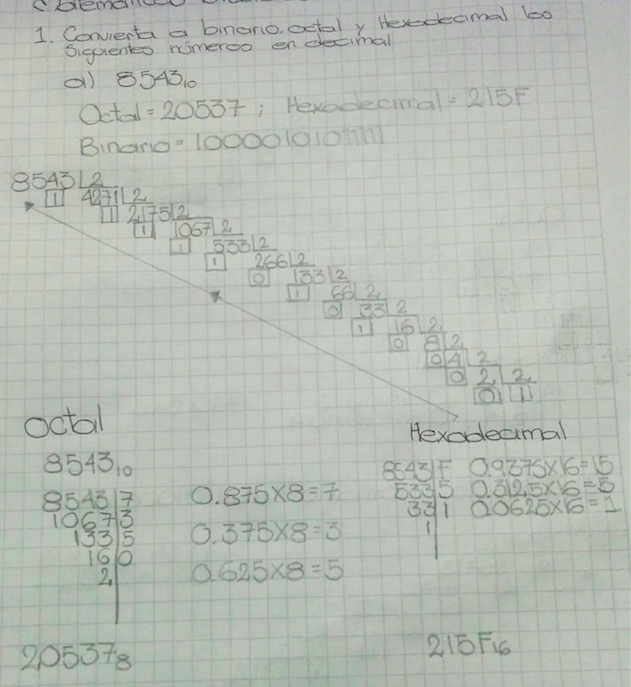 1. Convierta a binario, octal y Hexadecimal los
siguientes números en decimal
a) 8543₁₀
Octal = 20537 ; Hexadecimal = 215F
Binario = 10000101011111
8543 2
1 4271 2
1 2175 2
1 1067 2
1 533 2
1 266 2
0 133 2
1 66 2
0 33 2
1 16 2
0 8 2
0 4 2
0 2 2
0 1
Octal
8543₁₀
8543 7
1067 3
133 5
16 0
2
0.875x8=7
0.375x8=3
0.625x8=5
20537₈
Hexadecimal
8543 F 0.9375x16=15
533 5 0.3125x16=5
33 1 0.0625x16=1
1
215F₁₆